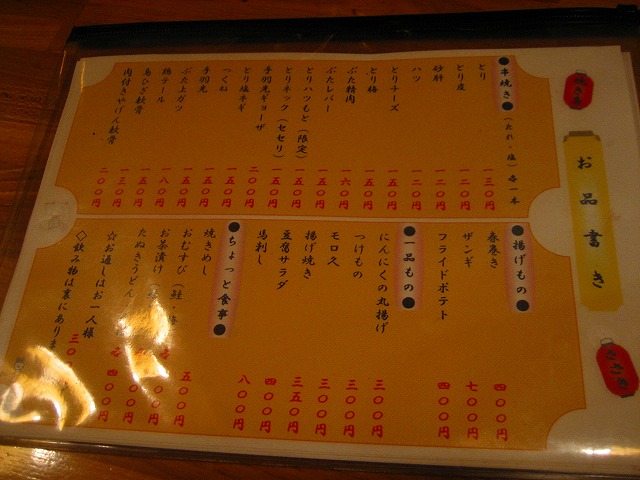 お品書き
ささき
●串焼き●(たれ・塩)各一本
とり 一三〇円
とり皮 一二〇円
砂肝 一二〇円
ハツ 一二〇円
とりチーズ 一五〇円
とり梅 一五〇円
ぶた精肉 一六〇円
ぶたレバー 一五〇円
とりハツもと(限定) 一五〇円
とりネック(セセリ) 一五〇円
手羽先ギョーザ 二〇〇円
とり塩ネギ 一五〇円
つくね 一五〇円
手羽先 一五〇円
ぶた上ガツ 一八〇円
鶏テール 一五〇円
鳥ひざ軟骨 一三〇円
肉付きやげん軟骨 二〇〇円
●揚げもの●
春巻き 四〇〇円
ザンギ 七〇〇円
フライドポテト 四〇〇円
●一品もの●
にんにくの丸揚げ 三〇〇円
つけもの 三〇〇円
モロ久 三〇〇円
揚げ焼き 三五〇円
豆腐サラダ 四〇〇円
馬刺し 八〇〇円
●ちょっと食事●
焼きめし 五〇〇円
おむすび(鮭・
お茶漬け(
たぬきうどん
☆お通しはお一人様
◇飲み物は裏にありま